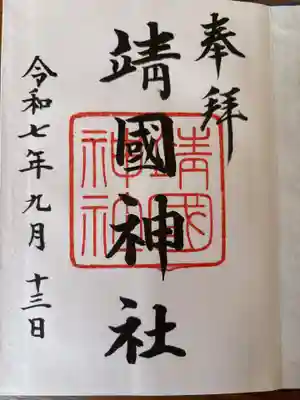 奉拝
靖國神社
靖国
神社
令和七年九月十三日